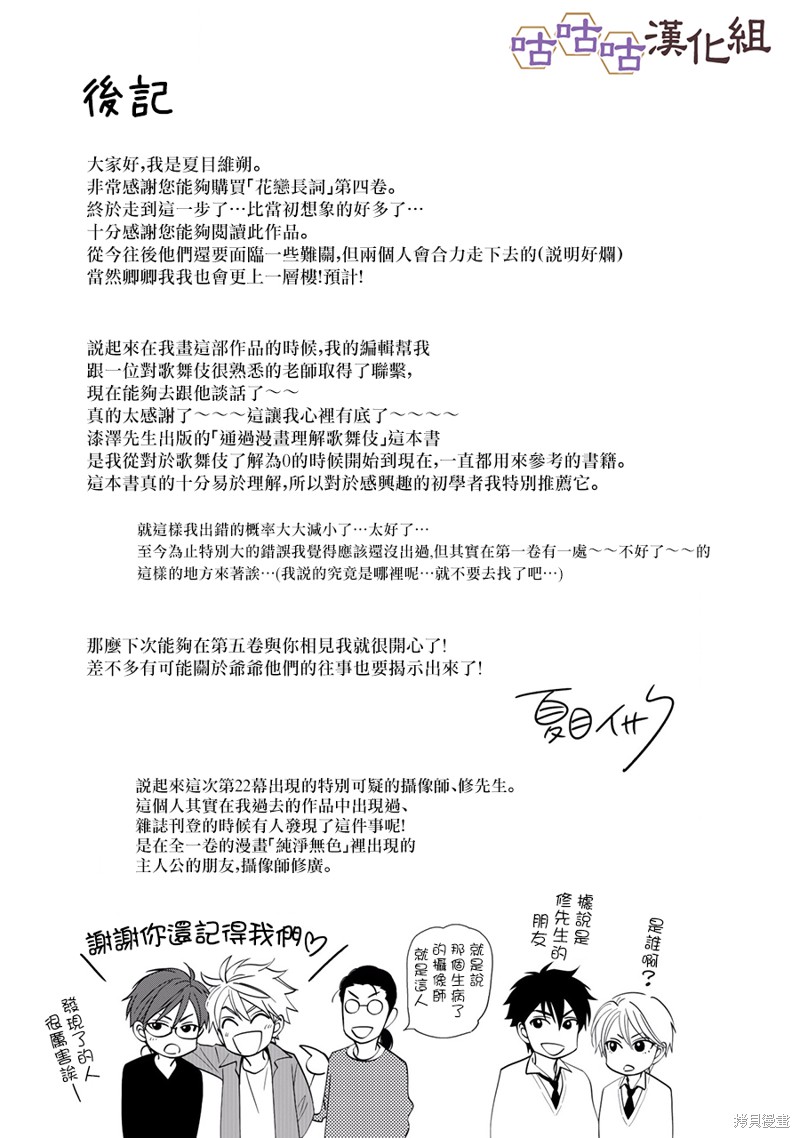 咕咕咕漢化組
後記
大家好,我是夏目維朔。
非常感謝您能夠購買「花戀長詞」第四卷。
終於走到這一步了…比當初想象的好多了…
十分感謝您能夠閱讀此作品。
從今往後他們還要面臨一些難關,但兩個人會合力走下去的(説明好爛)
當然卿卿我我也會更上一層樓!預計!
説起來在我畫這部作品的時候,我的編輯幫我
跟一位對歌舞伎很熟悉的老師取得了聯繫,
現在能夠去跟他談話了～～
真的太感謝了～～～這讓我心裡有底了～～～～
漆澤先生出版的「通過漫畫理解歌舞伎」這本書
是我從對於歌舞伎了解為0的時候開始到現在,一直都用來參考的書籍。
這本書真的十分易於理解,所以對於感興趣的初學者我特別推薦它。
就這樣我出錯的概率大大減小了…太好了…
至今為止特別大的錯誤我覺得應該還沒出過,但其實在第一卷有一處～～不好了～～的
這樣的地方來著誒…(我說的究竟是哪裡呢…就不要去找了吧…)
那麼下次能夠在第五卷與你相見我就很開心了!
差不多有可能關於爺爺他們的往事也要揭示出來了!
夏目イサク
説起來這次第22幕出現的特別可疑的攝像師、修先生。
這個人其實在我過去的作品中出現過、
雜誌刊登的時候有人發現了這件事呢!
是在全一卷的漫畫「純淨無色」裡出現的
主人公的朋友,攝像師修廣。
謝謝你還記得我們♡
發現了的人
很厲害誒ー
就是說
那個生病了
的攝像師
就是這人
據說是
修先生的
朋友
是誰啊?
拷貝漫畫